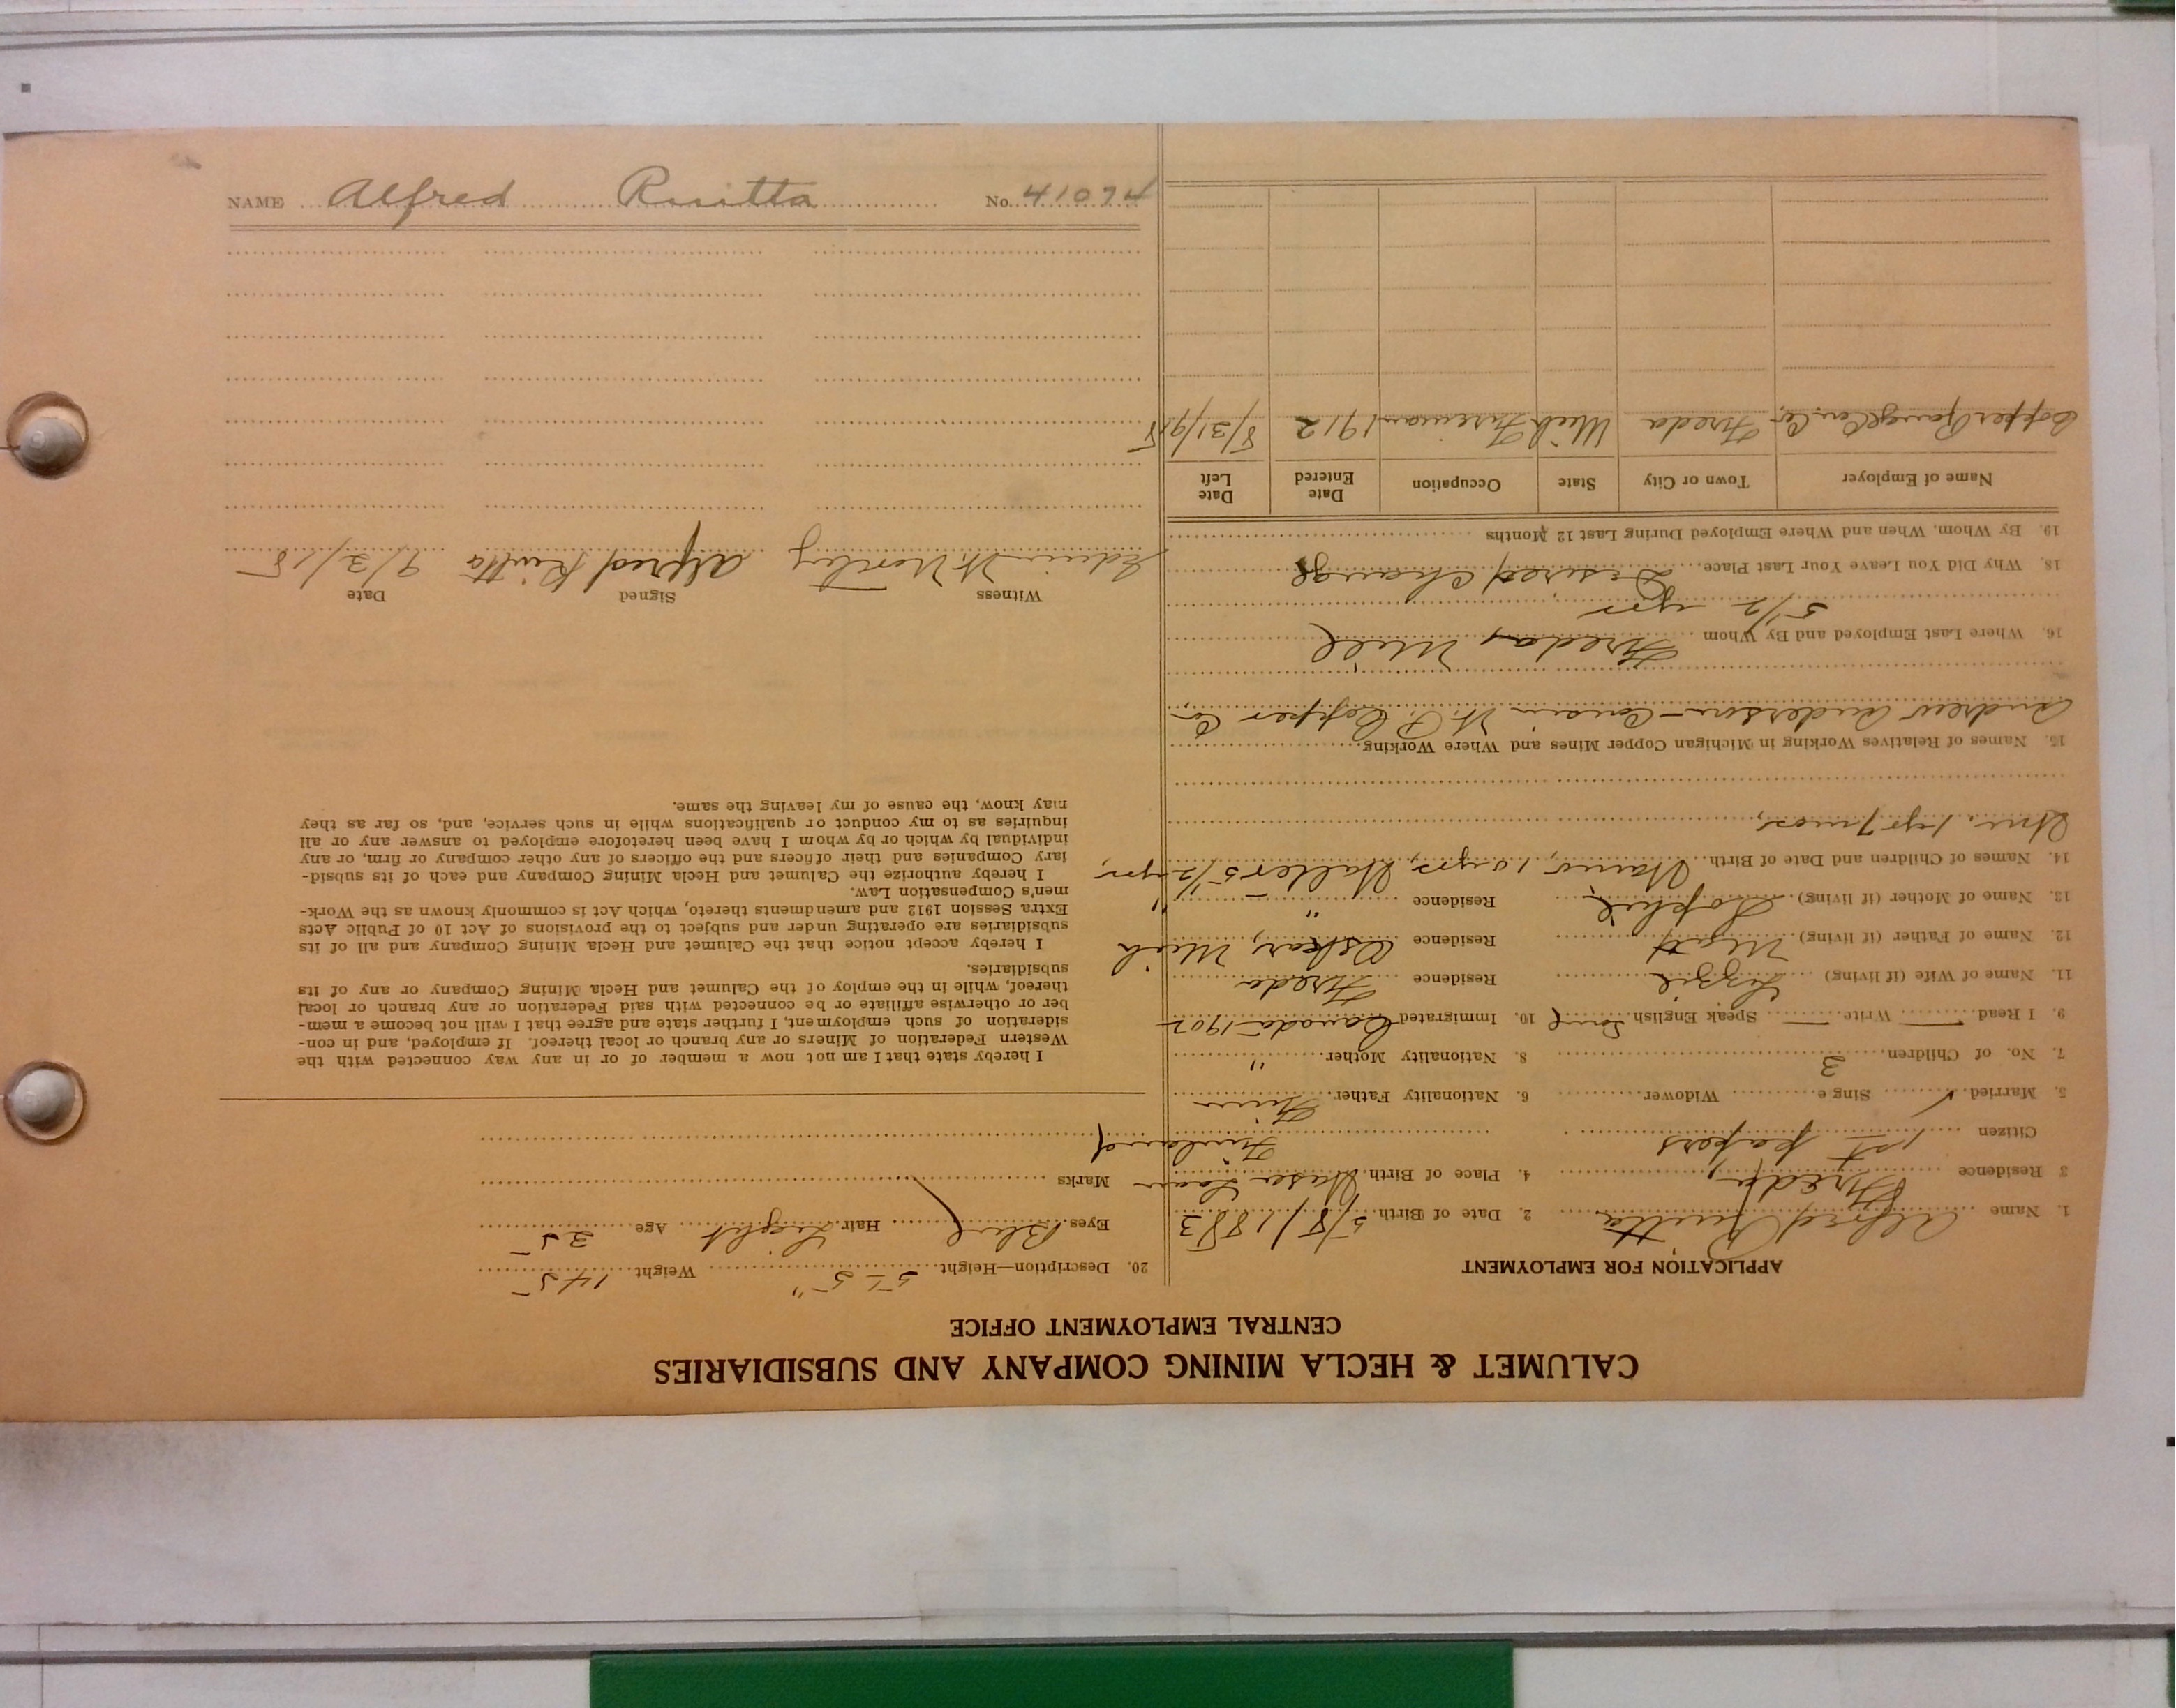 CALUMET & HECLA MINING COMPANY AND SUBSIDIARIES
CENTRAL EMPLOYMENT OFFICE
APPLICATION FOR EMPLOYMENT
1. Name Alfred Ruitta 2. Date of Birth 5/8/1883
3 Residence Freda, 4. Place of Birth Wasa Laan
Citizen 1st papers Finland
5. Married ✓ Sing e Widower 6. Nationality Father Finn
7. No. of Children 3 8. Nationality Mother "
9. I Read — Write — Speak English Some 10. Immigrated Canada-1902
11. Name of Wife (if living) Lizzie Residence Freda
12. Name of Father (if living) Residence Oskar, Mich
13. Name of Mother (if living) Sophie Residence " "
14. Names of Children and Date of Birth 10 yrs, Walter 5 1/2 yrs,
1 yr 7 mos,
15. Names of Relatives Working in Michigan Copper Mines and Where Working
Andrew Anderson-Cousin W. P. Copper Co,
16. Where Last Employed and By Whom Freda, Mill
5 1/2 yrs
18. Why Did You Leave Your Last Place Desired Change
19. By Whom, When and Where Employed During Last 12 Months
Name of Employer Town or City State Occupation Date Entered Date Left
Copper Range Con. Co. Freda Mich Fireman 1912 8/31/918
20. Description—Height 5 - 5" Weight 145
Eyes Blue Hair Light Age 35
Marks
I hereby state that I am not now a member of or in any way connected with the
Western Federation of Miners or any branch or local thereof. If employed, and in con-
sideration of such employment, I further state and agree that I will not become a mem-
ber or otherwise affiliate or be connected with said Federation or any branch or local
thereof, while in the employ of the Calumet and Hecla Mining Company or any of its
subsidiaries.
I hereby accept notice that the Calumet and Hecla Mining Company and all of its
subsidiaries are operating under and subject to the provisions of Act 10 of Public Acts
Extra Session 1912 and amendments thereto, which Act is commonly known as the Work-
men's Compensation Law.
I hereby authorize the Calumet and Hecla Mining Company and each of its subsid-
iary Companies and their officers and the officers of any other company or firm, or any
individual by which or by whom I have been heretofore employed to answer any or all
inquiries as to my conduct or qualifications while in such service, and, so far as they
may know, the cause of my leaving the same.
Witness Signed Date
Edwin W. Alfred Ruitta 9/3/18
NAME Alfred Ruitta No. 41074